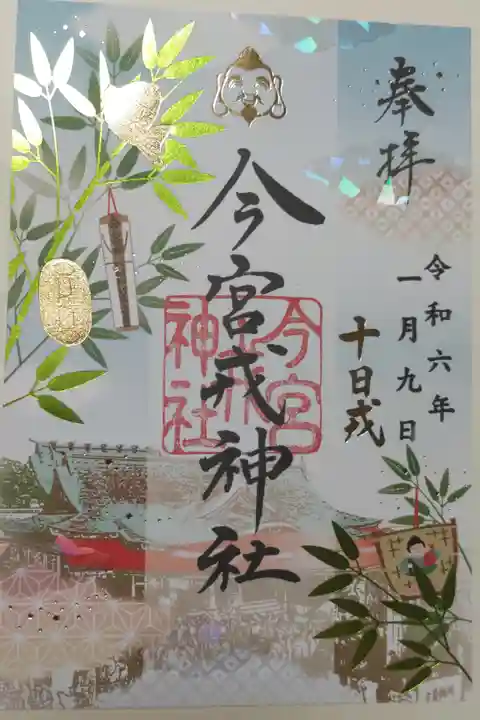 奉拝
令和六年
一月九日
十日戎
今宮戎神社
今宮
戎
神社